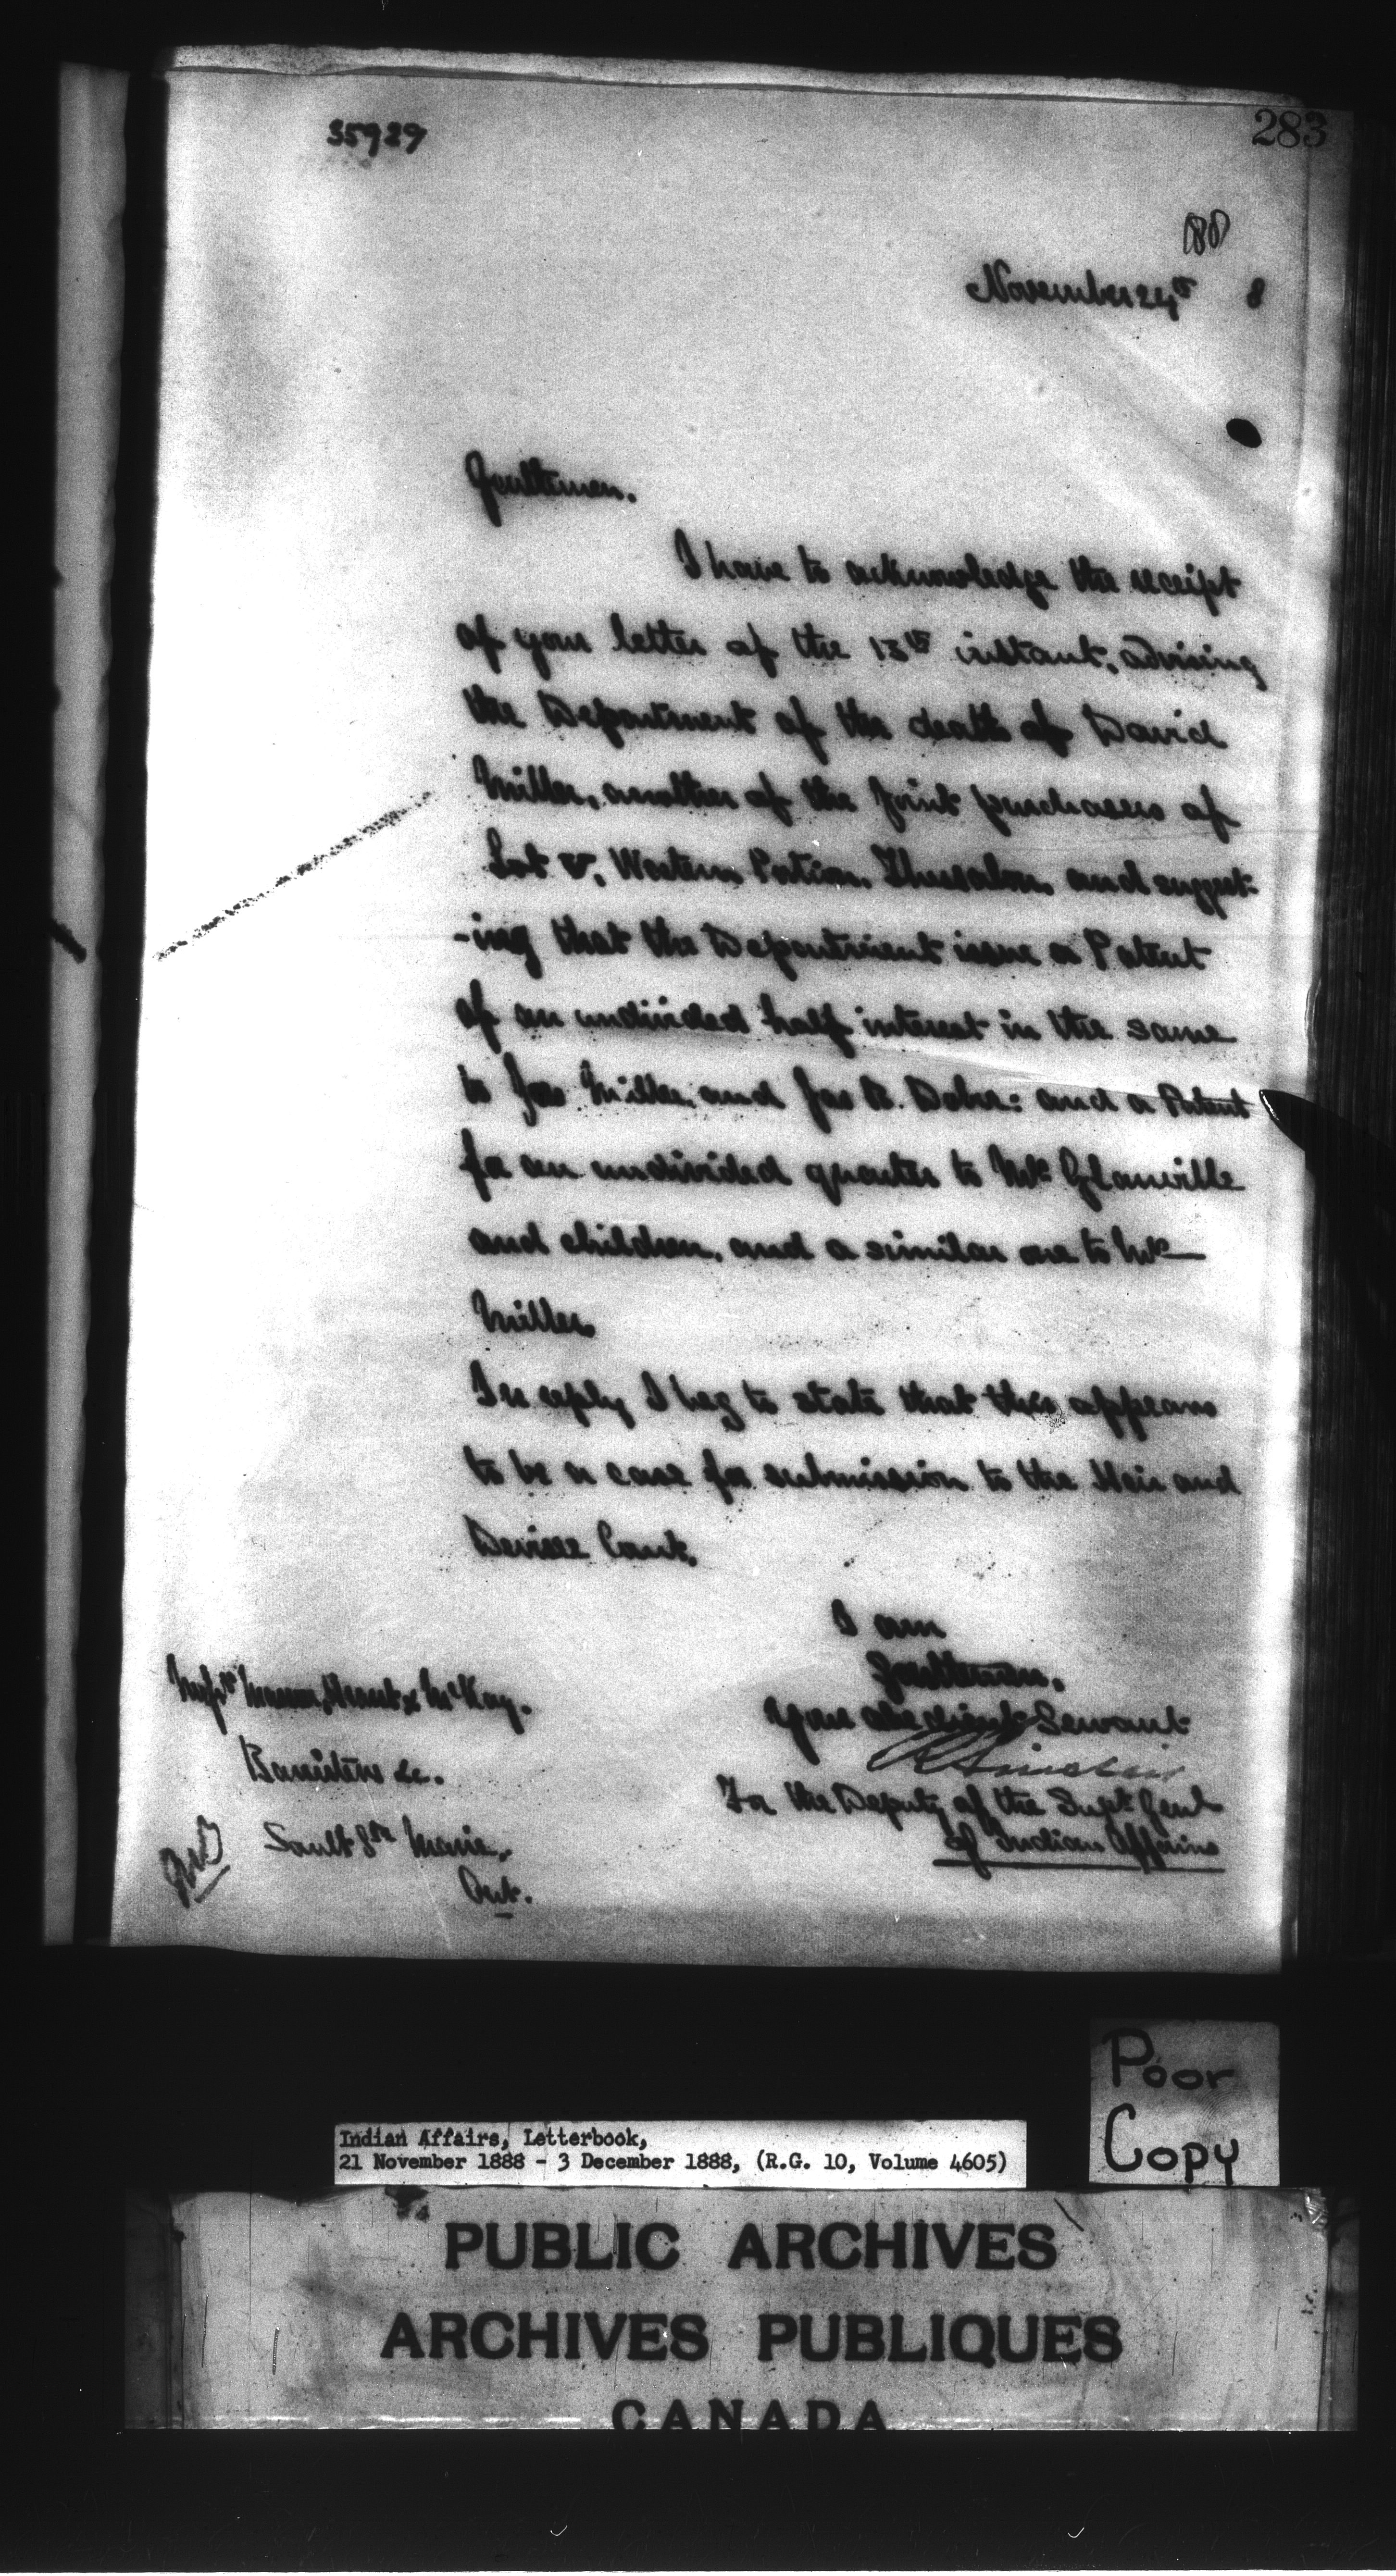 35929
283
November 24th 8
Gentlemen.
I have to acknowledge the receipt
of your letter of the 13th instant, advising
the Department of the death of David
Miller, another of the Joint purchasers of
Lot 5, Western Portion, Thessalon and suggest-
-ing that the Department issue a Patent
of an undivided half interest in the same
to Jas Miller, and Jas B. Dobie: and a Patent
for an undivided quarter to Mrs Glanville
and children, and a similar one to Mrs
Miller.
In reply I beg to state that this appears
to be a case for submission to the Heir and
Devisee Court.
I am
Gentlemen,
Your obedient Servant
For the Deputy of the Supt. Genl
of Indian Affairs
Messrs & McKay.
Barristers &c.
Sault Ste Marie,
Ont.
Poor
Copy
Indian Affairs, Letterbook,
21 November 1888 - 3 December 1888, (R.G. 10, Volume 4605)
PUBLIC ARCHIVES
ARCHIVES PUBLIQUES
CANADA